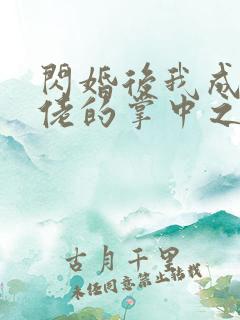 閃婚後我成
佬的掌中之
古月千里
未經同意禁止轉載